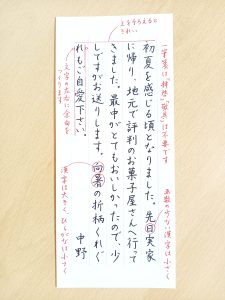 上をそろえると
きれい
一筆箋には「拝啓」「敬具」は不要です
初夏を感じる頃となりました。先日実家
に帰り、地元で評判のお菓子屋さんへ行って
きました。最中がとてもおいしかったので、少
しですがお送りします。向暑の折柄くれぐ
れもご自愛下さい。
中野
画数の少ない漢字は小さく
文字の左右に余白を
つくります
漢字は大きく、ひらがなは小さく